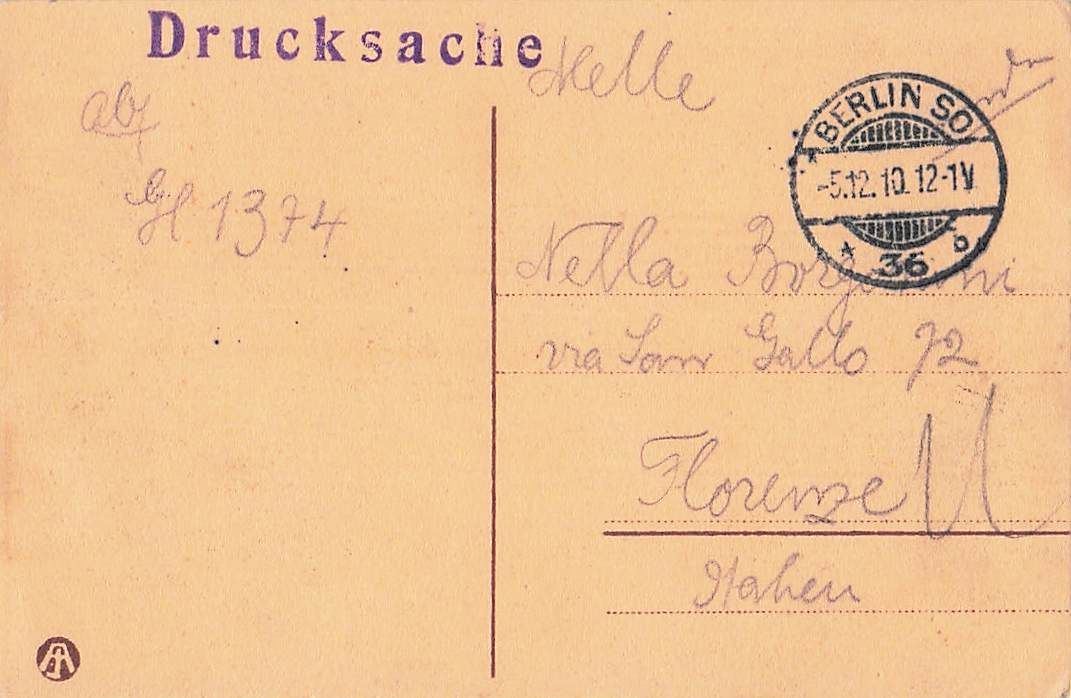 Drucksache
Melle
abz
Gl 1374
BERLIN SO
-5.12.10.12-1N
* 36 b
Nella
via San Gallo 72
Florenze
Italien